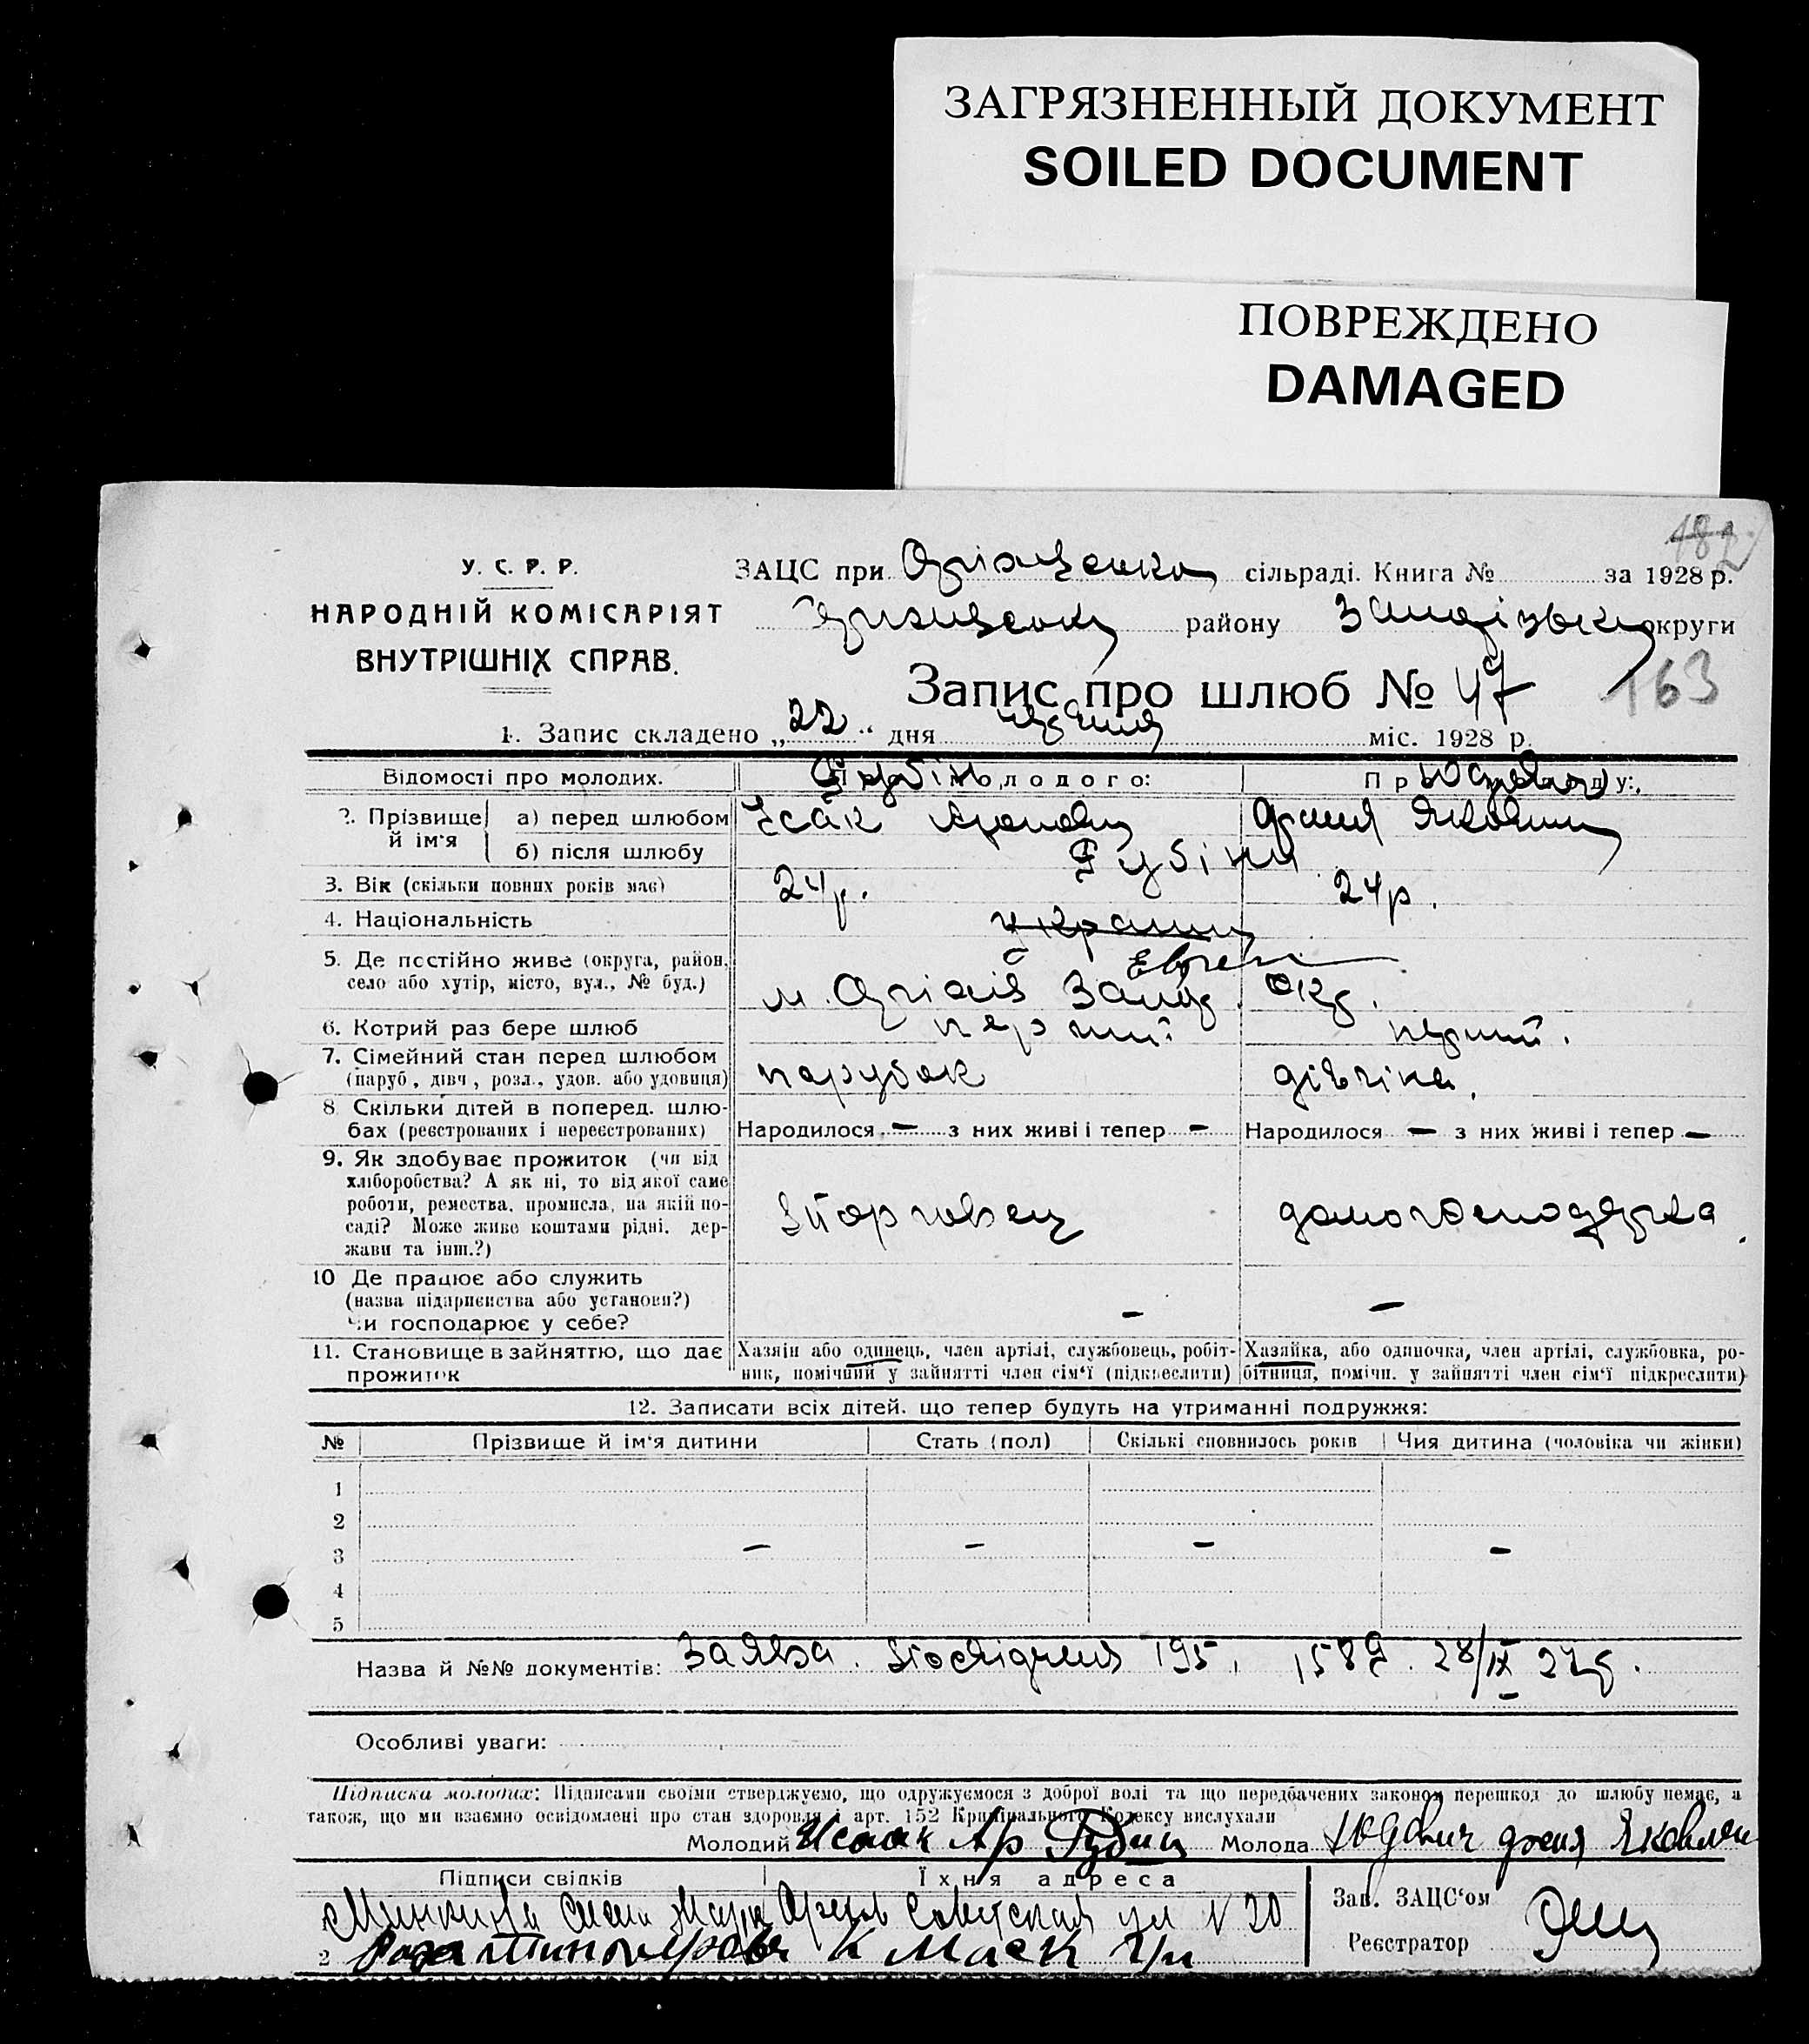 ЗАГРЯЗНЕННЫЙ ДОКУМЕНТ
SOILED DOCUMENT
ПОВРЕЖДЕНО
DAMAGED
182
У. С. Р. Р.
НАРОДНІЙ КОМІСАРІЯТ
ВНУТРІШНІХ СПРАВ.
ЗАЦС при сільраді. Книга № за 1928 р.
району округи
Запис про шлюб № 47
163
1. Запис складено „22“ дня червня міс. 1928 р.
Відомості про молодих.
2. Прізвище й ім'я
а) перед шлюбом Ісак Аронович Яковлівна
б) після шлюбу Губіни
3. Вік (скільки повних років має) 24 р. 24 р.
4. Національність
5. Де постійно живе (округа, район, село або хутір, місто, вул., № буд.) м. Оріхів Запор. окр.
6. Котрий раз бере шлюб перший перший.
7. Сімейний стан перед шлюбом
(паруб, дівч, розл., удов. або удовиця) парубок дівчина.
8. Скільки дітей в поперед. шлю-
бах (реєстрованих і нереєстрованих) Народилося — з них живі і тепер — Народилося — з них живі і тепер —
9. Як здобуває прожиток (чи від
хліборобства? А як ні, то від якої саме
роботи, ремества, промисла, на якій по-
саді? Може живе коштами рідні, дер-
жави та інш.?) торговець домогосподарка.
10 Де працює або служить
(назва підприєнства або установи?)
Чи господарює у себе? — —
11. Становище в зайняттю, що дає прожиток
Хазяін або одинець, член артілі, службовець, робіт-
ник, помічний у зайнятті член сім'ї (підкреслити)
Хазяйка, або одиночка, член артілі, службовка, ро-
бітниця, помічн. у зайнятті член сім'ї підкреслити)
12. Записати всіх дітей. що тепер будуть на утриманні подружжя:
№ Прізвище й ім'я дитини Стать (пол) Скількі сповнилось років Чия дитина (чоловіка чи жінки)
1
2
3 — — — —
4
5
Назва й №№ документів: Заява. Посвідчення 195, 1589. 28/IX 27 р.
Особливі уваги:
Підписка молодих: Підписами своїми стверджуємо, що одружуємося з доброї волі та що передбачених законом перешкод до шлюбу немає, а
також, що ми взаємно освідомлені про стан здоровля і арт. 152 Кримінального Кодексу вислухали
Молодий Исаак Ар Губин Молода Юдович Яковлевн
Підписи свідків Їхня адреса
Советская ул N 20
2 К Маск
Зав. ЗАЦС'ом
Реєстратор